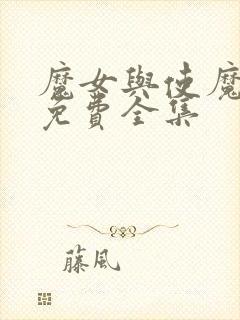 魔女與使魔
免費全集
藤風